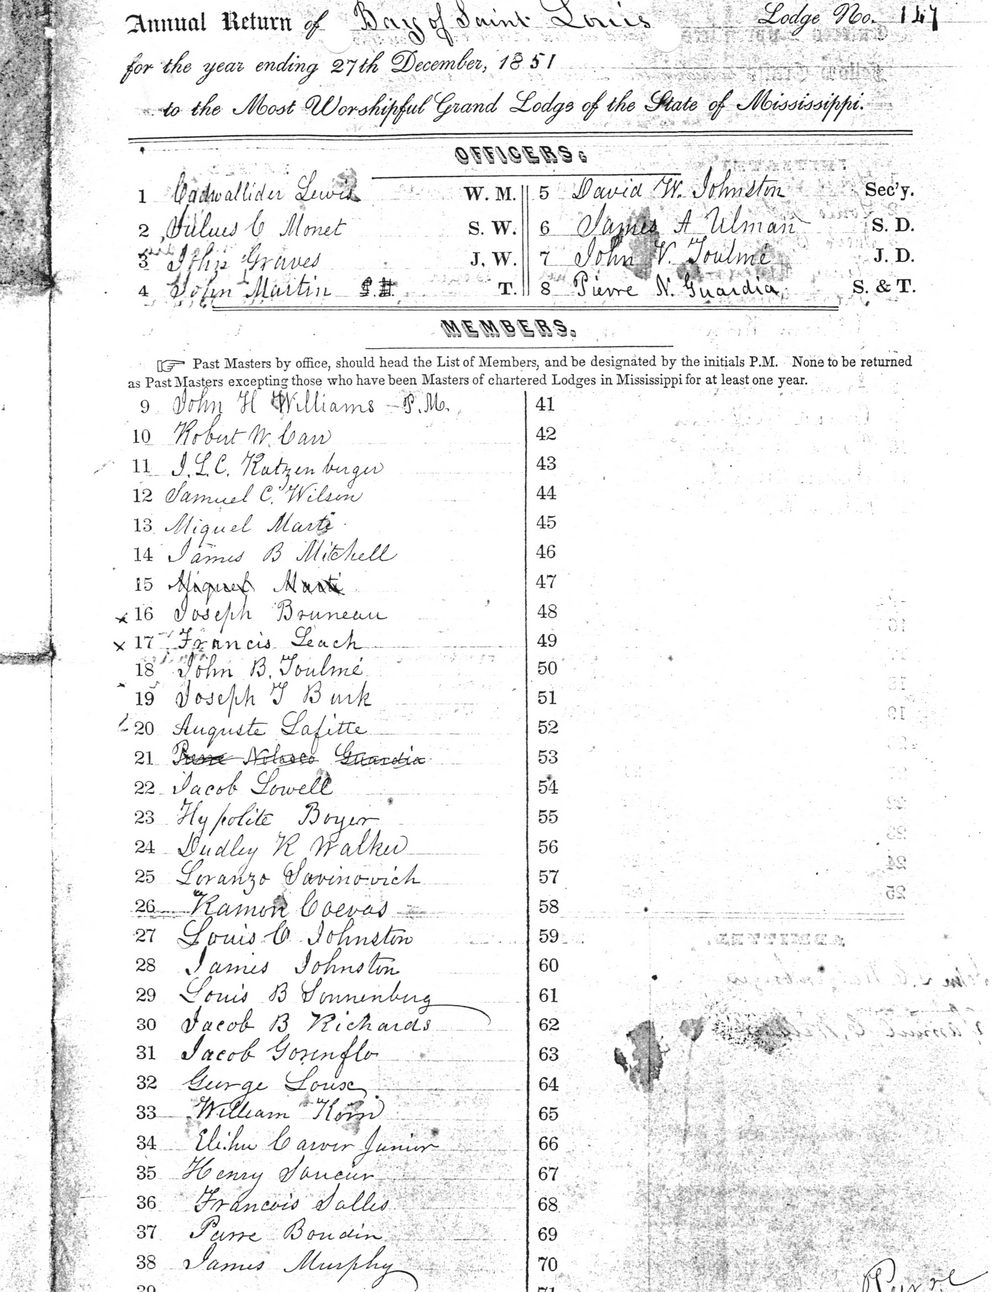 Annual Return of Bay of Saint Louis Lodge No. 147
for the year ending 27th December, 1851
to the Most Worshipful Grand Lodge of the State of Mississippi.
OFFICERS:
1 Cadwallider Lewis W. M.
5 David W. Johnston Sec'y.
2 Julius C Monet S. W.
6 James A Ulman S. D.
3 John Graves J. W.
7 John V. Toulmé J. D.
4 John Martin T.
8 Pierre N. Guardia S. & T.
MEMBERS.
☞ Past Masters by office, should head the List of Members, and be designated by the initials P.M. None to be returned
as Past Masters excepting those who have been Masters of chartered Lodges in Mississippi for at least one year.
9 John H Williams P.M.
10 Robert W. Carr
11 J. L. C. Katzenberger
12 Samuel C. Wilson
13 Miguel Marti
14 James B Mitchell
15 Miguel Marti
16 Joseph Bruneau
17 Francis Leach
18 John B. Toulmé
19 Joseph T Burk
20 Auguste Lafitte
21 Pierre Nolasco Guardia
22 Jacob Lowell
23 Hypolite Boyer
24 Dudley R Walker
25 Loranzo Savinovich
26 Ramon Coevas
27 Louis C Johnston
28 James Johnston
29 Louis B Sonnenberg
30 Jacob B Richards
31 Jacob Gorenflo
32 George Loux
33 William Korn
34 Elihu Carver Junior
35 Henry Saucier
36 Francois Salles
37 Pierre Boudin
38 James Murphy
39
41
42
43
44
45
46
47
48
49
50
51
52
53
54
55
56
57
58
59
60
61
62
63
64
65
66
67
68
69
70
71
Pierre